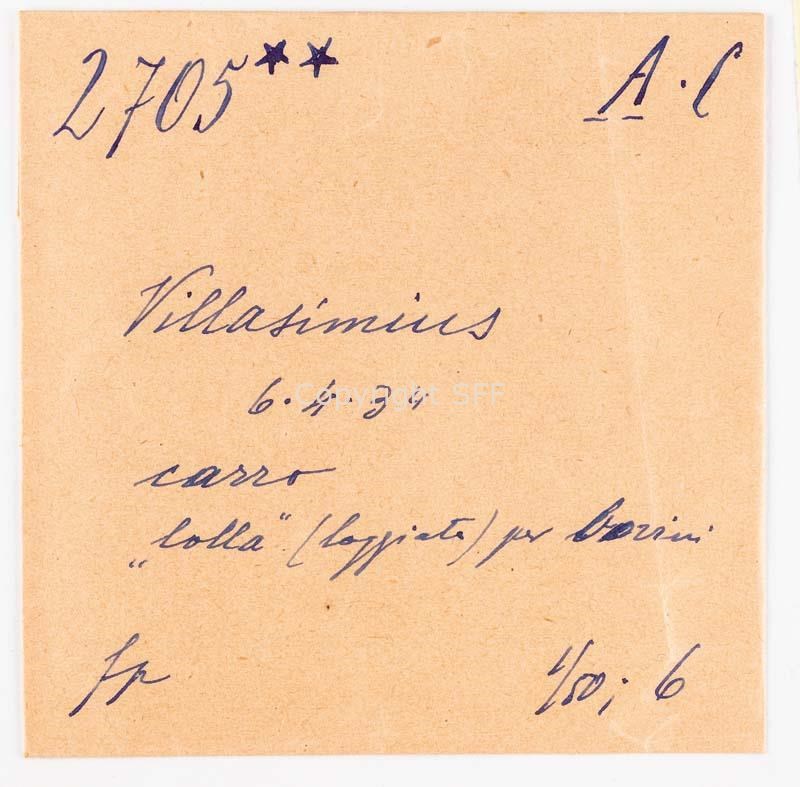 2705** A. C
Villasimius
6.4.34
Copyright SFF
carro
„lolla“ (loggiata) per bovini
fp
1/50; 6